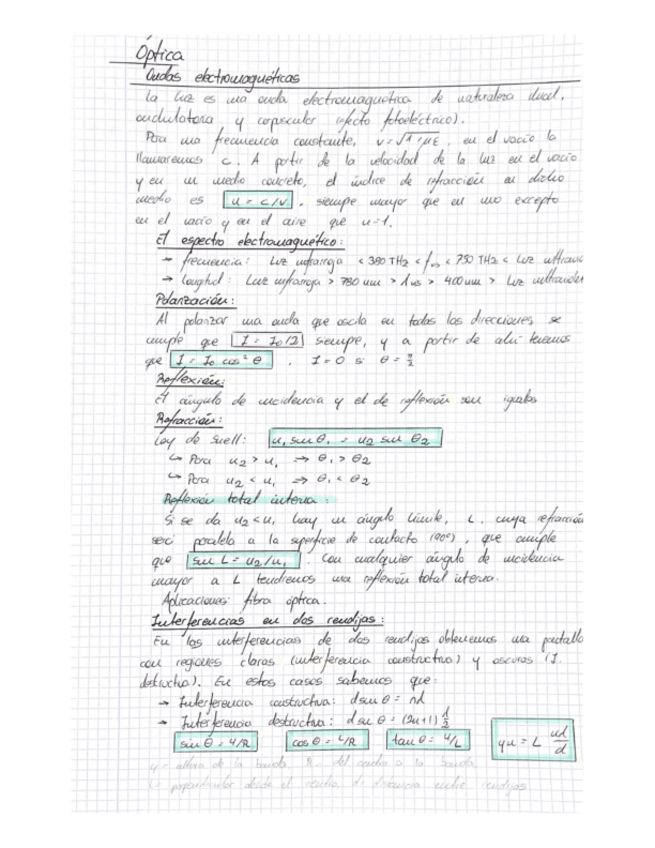 Óptica
Ondas electromagnéticas
La luz es una onda electromagnética de naturaleza dual,
ondulatoria y corpuscular (efecto fotoeléctrico).
Para una frecuencia constante, v = √1/με, en el vacío la
llamaremos c. A partir de la velocidad de la luz en el vacío
y en un medio concreto, el índice de refracción en dicho
medio es n = c/v, siempre mayor que en uno excepto
en el vacío y en el aire que n=1.
El espectro electromagnético:
→ frecuencia: Luz infrarroja < 380 THz < f vis < 750 THz < Luz ultravio
→ Longitud: Luz infrarroja > 780 nm > λ vis > 400 nm > Luz ultraviolet
Polarización:
Al polarizar una onda que oscila en todas las direcciones se
cumple que I = I₀/2 siempre, y a partir de ahí tenemos
que I = I₀ cos² θ . I=0 si θ = π/2
Reflexión:
El ángulo de incidencia y el de reflexión son iguales
Refracción:
Ley de Snell: n₁ sen θ₁ = n₂ sen θ₂
↪ Para n₂ > n₁ ⇒ θ₁ > θ₂
↪ Para n₂ < n₁ ⇒ θ₁ < θ₂
Reflexión total interna:
Si se da n₂<n₁ hay un ángulo límite, L, cuya refracción
será paralela a la superficie de contacto (90º), que cumple
que sen L = n₂/n₁. Con cualquier ángulo de incidencia
mayor a L tendremos una reflexión total interna.
Aplicaciones: fibra óptica.
Interferencias en dos rendijas:
En las interferencias de dos rendijas obtenemos una pantalla
con regiones claras (interferencia constructiva) y oscuras (I.
destructiva). En estos casos sabemos que:
→ Interferencia constructiva: d sen θ = nλ
→ Interferencia destructiva: d sen θ = (2n+1) λ/2
sin θ = y/R cos θ = L/R tan θ = y/L yn = L nλ/d
y = altura de la banda, R = del centro a la banda
L = perpendicular desde el centro, d = distancia entre rendijas